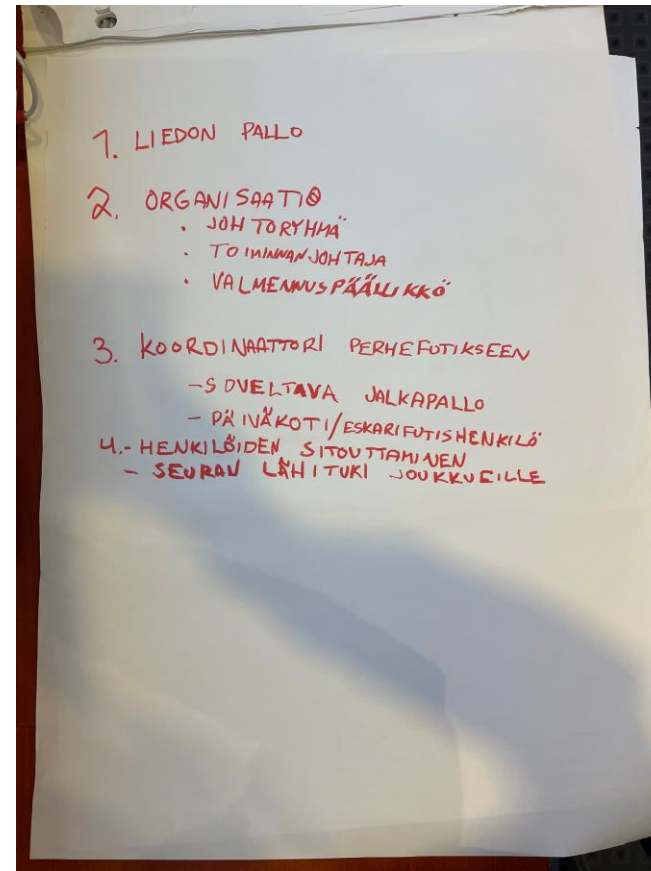 1. LIEDON PALLO
2. ORGANISAATIO
· JOHTORYHMÄ
· TOIMINNANJOHTAJA
· VALMENNUSPÄÄLLIKKÖ
3. KOORDINAATTORI PERHEFUTIKSEEN
- SOVELTAVA JALKAPALLO
- PÄIVÄKOTI/ESKARIFUTISHENKILÖ
4. - HENKILÖIDEN SITOUTTAMINEN
- SEURAN LÄHITUKI JOUKKUEILLE